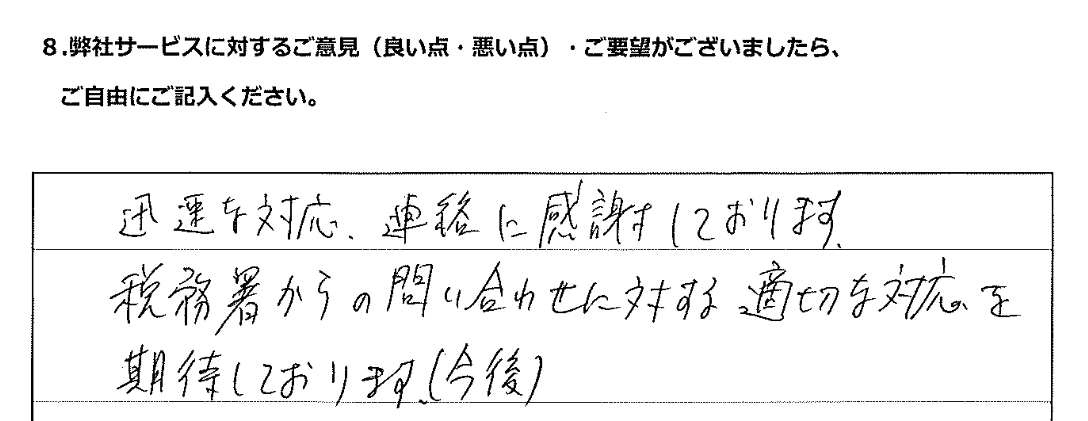 8.弊社サービスに対するご意見（良い点・悪い点）・ご要望がございましたら、
ご自由にご記入ください。
迅速な対応、連絡に感謝しております。
税務署からの問い合わせに対する適切な対応を
期待しております。(今後)